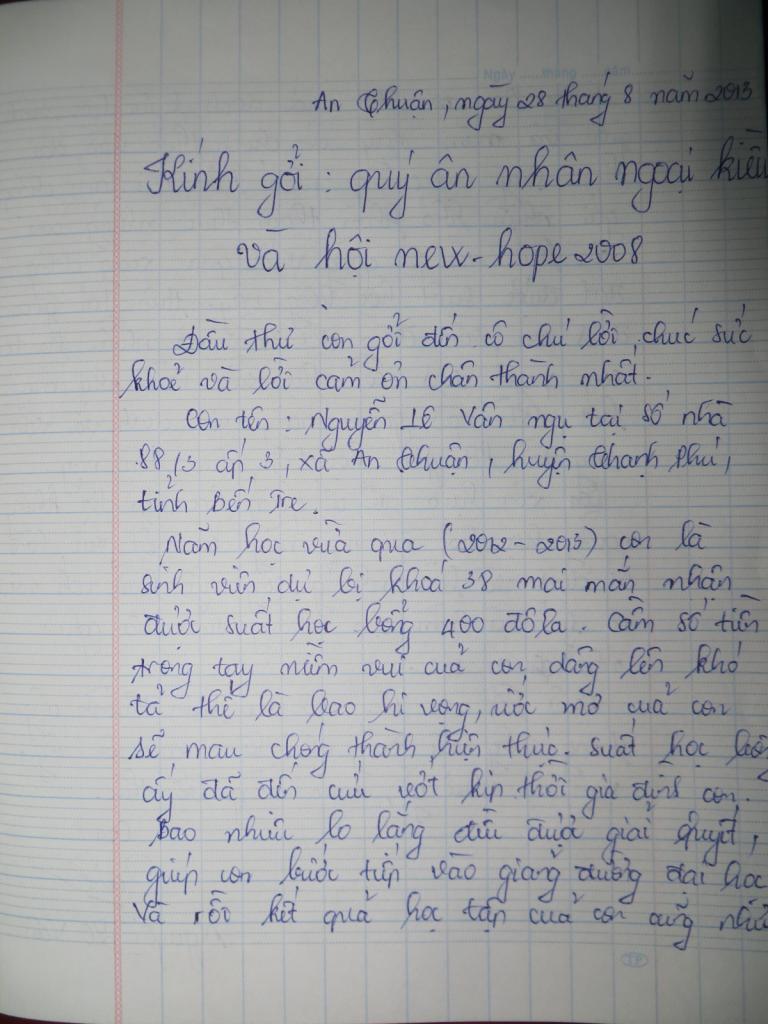 Ngày ......tháng ......năm......
An Thuận, ngày 28 tháng 8 năm 2013
Kính gởi : quý ân nhân ngoại kiều
và hội new-hope 2008
Đầu thư con gởi đến cô chú lời chúc sức
khoẻ và lời cảm ơn chân thành nhất.
Con tên : Nguyễn Lê Vân ngụ tại số nhà
88/3 ấp 3, xã An Thuận, huyện Thạnh Phú,
tỉnh Bến Tre.
Năm học vừa qua (2012-2013) con là
sinh viên dự bị khoá 38 mai mắn nhận
được suất học bổng 400 đôla. Cầm số tiền
trong tay niềm vui của con dâng lên khó
tả thế là bao hi vọng, ước mơ của con
sẽ mau chóng thành hiện thực. Suất học bổng
ấy đã đến cứu vớt kịp thời gia đình con.
Bao nhiêu lo lắng đều được giải quyết,
giúp con bước tiếp vào giảng đường đại học
và rồi kết quả học tập của con cũng như